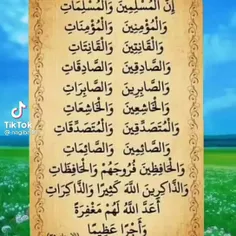 إِنَّ الْمُسْلِمِينَ وَالْمُسْلِمَاتِ
وَالْمُؤْمِنِينَ وَالْمُؤْمِنَاتِ
وَالْقَانِتِينَ وَالْقَانِتَاتِ
وَالصَّادِقِينَ وَالصَّادِقَاتِ
وَالصَّابِرِينَ وَالصَّابِرَاتِ
وَالْخَاشِعِينَ وَالْخَاشِعَاتِ
وَالْمُتَصَدِّقِينَ وَالْمُتَصَدِّقَاتِ
وَالصَّائِمِينَ وَالصَّائِمَاتِ
وَالْحَافِظِينَ فُرُوجَهُمْ وَالْحَافِظَاتِ
وَالذَّاكِرِينَ اللَّهَ كَثِيرًا وَالذَّاكِرَاتِ
أَعَدَّ اللَّهُ لَهُمْ مَغْفِرَةً
وَأَجْرًا عَظِيمًا
TikTok